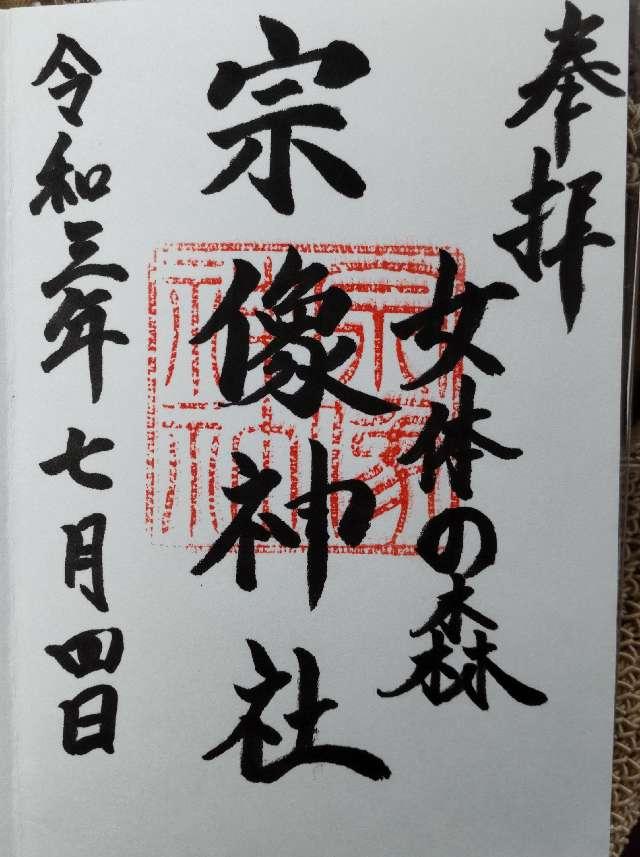 奉拝
女体の森
宗像神社
令和三年七月四日